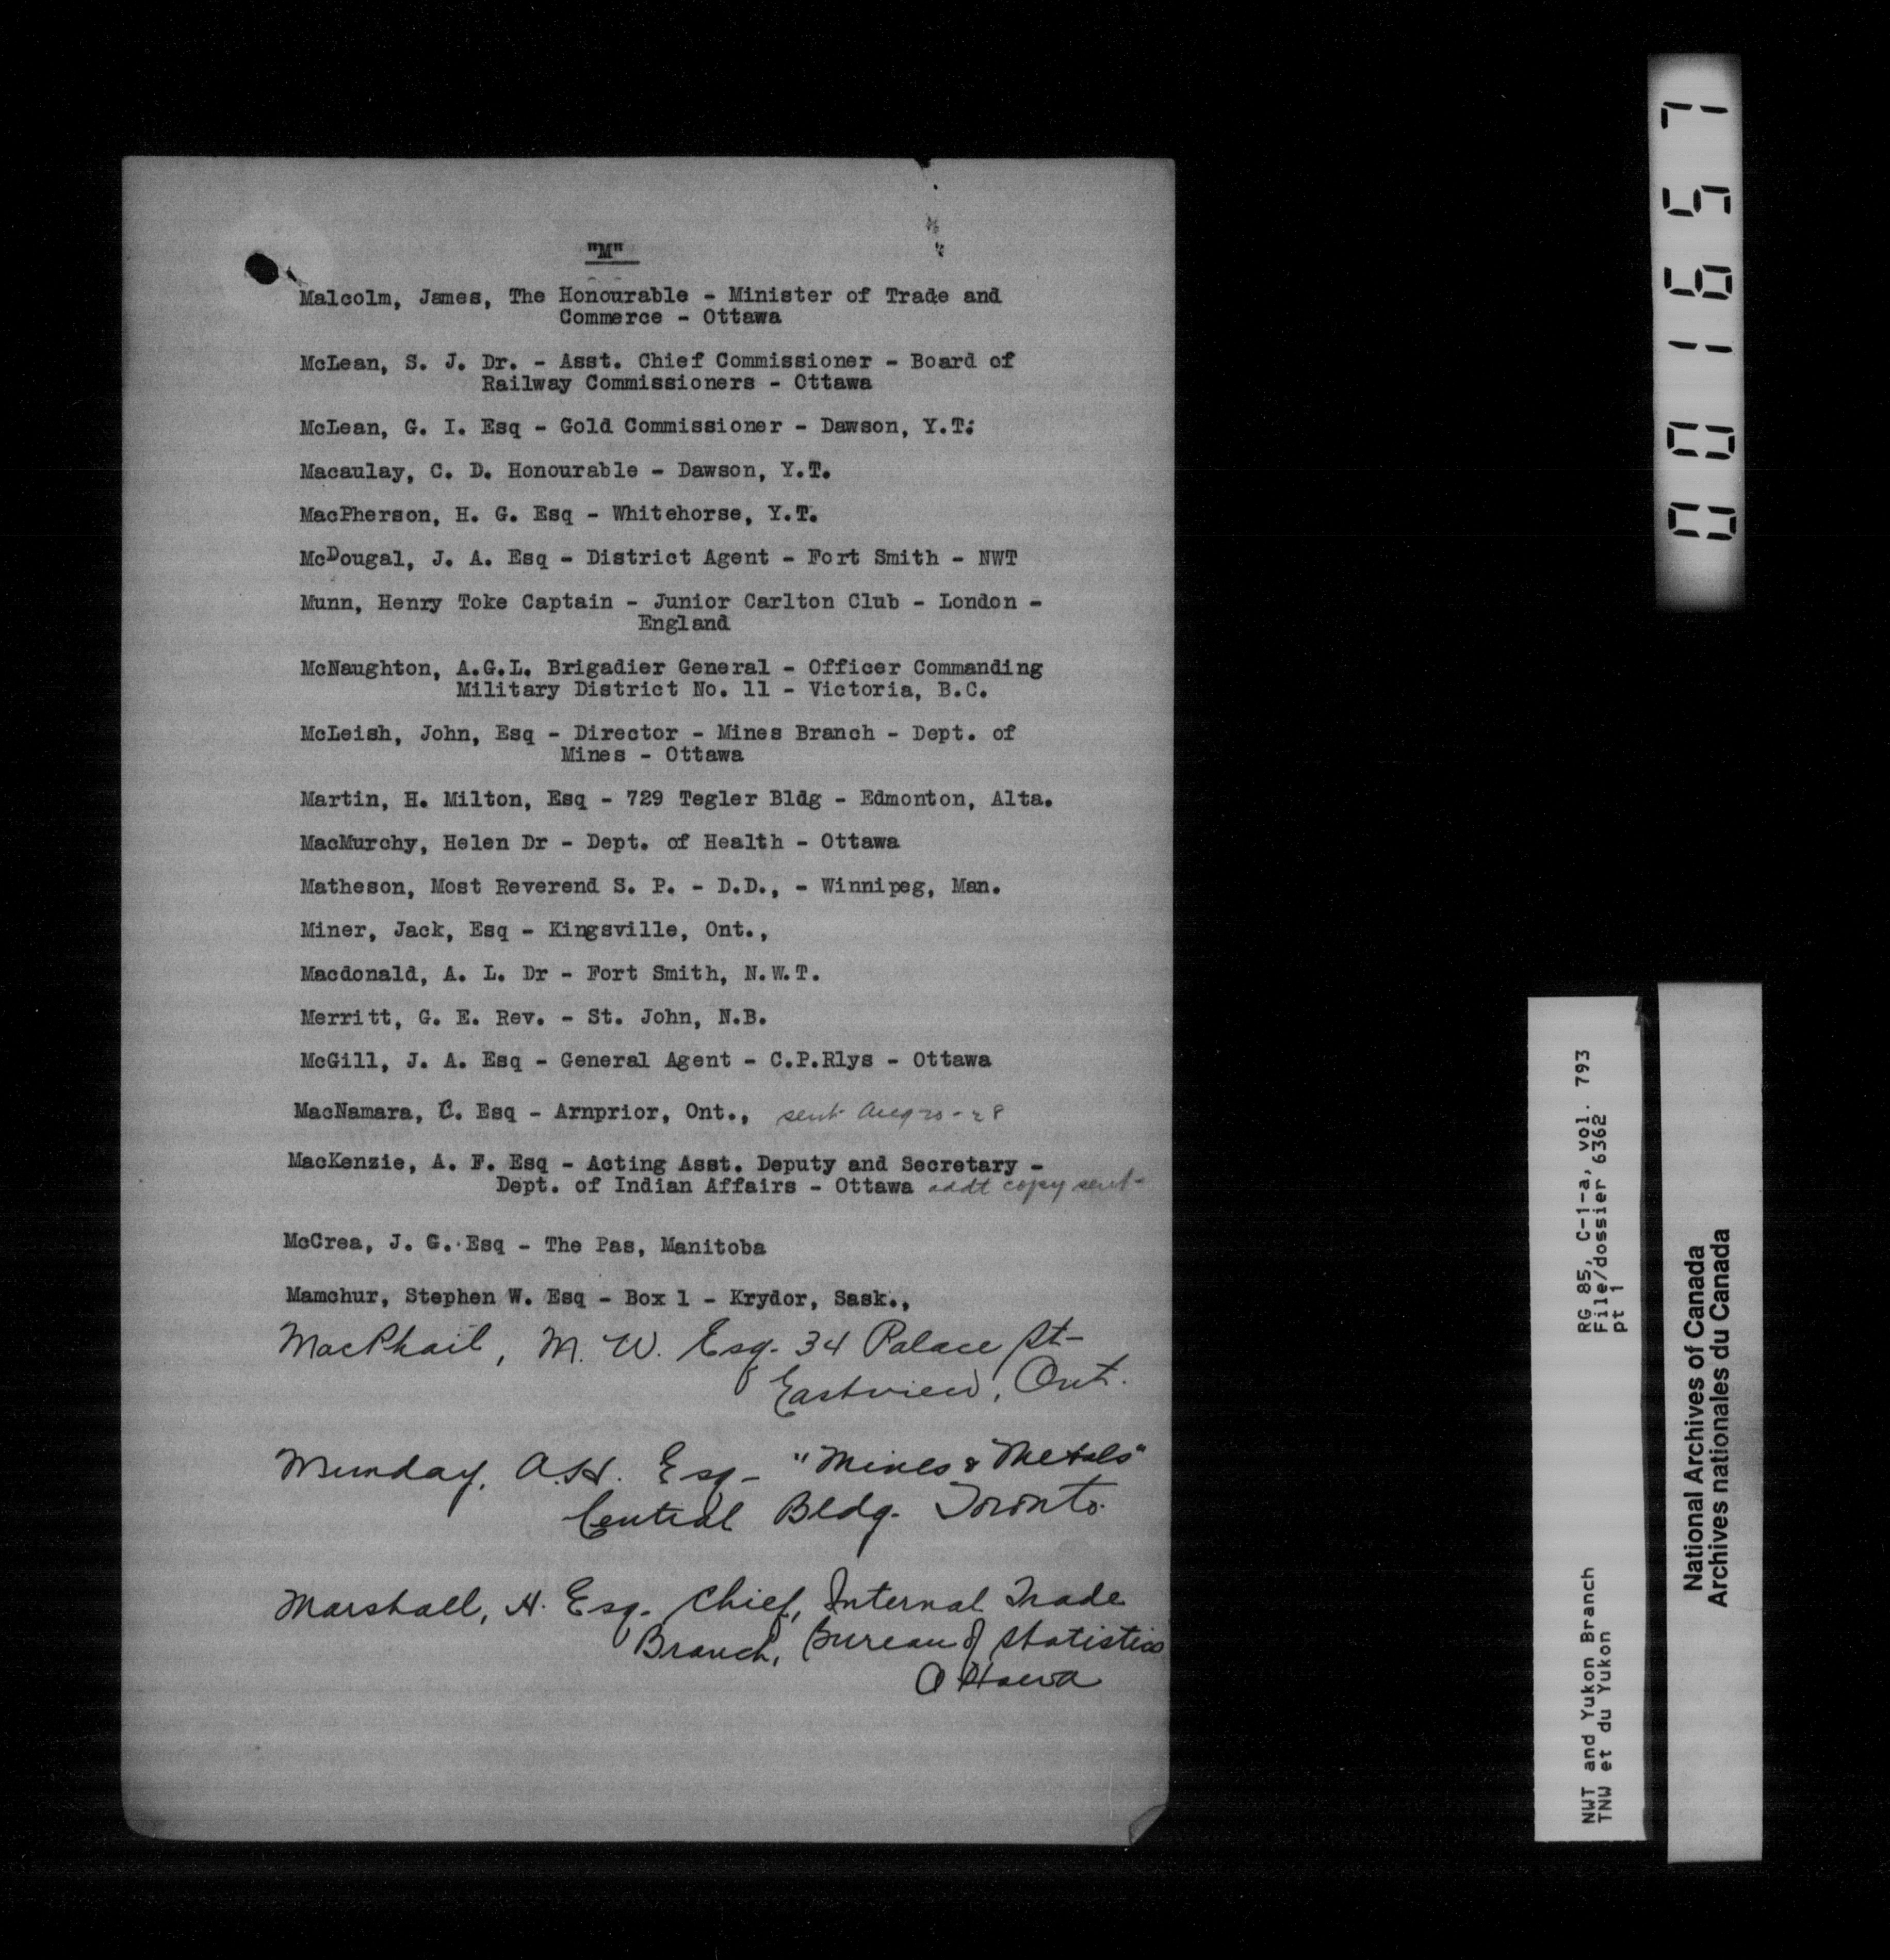 "M"
Malcolm, James, The Honourable - Minister of Trade and
Commerce - Ottawa
McLean, S. J. Dr. - Asst. Chief Commissioner - Board of
Railway Commissioners - Ottawa
McLean, G. I. Esq - Gold Commissioner - Dawson, Y.T.
Macaulay, C. D. Honourable - Dawson, Y.T.
MacPherson, H. G. Esq - Whitehorse, Y.T.
McDougal, J. A. Esq - District Agent - Fort Smith - NWT
Munn, Henry Toke Captain - Junior Carlton Club - London -
England
McNaughton, A.G.L. Brigadier General - Officer Commanding
Military District No. 11 - Victoria, B.C.
McLeish, John, Esq - Director - Mines Branch - Dept. of
Mines - Ottawa
Martin, H. Milton, Esq - 729 Tegler Bldg - Edmonton, Alta.
MacMurchy, Helen Dr - Dept. of Health - Ottawa
Matheson, Most Reverend S. P. - D.D., - Winnipeg, Man.
Miner, Jack, Esq - Kingsville, Ont.,
Macdonald, A. L. Dr - Fort Smith, N.W.T.
Merritt, G. E. Rev. - St. John, N.B.
McGill, J. A. Esq - General Agent - C.P.Rlys - Ottawa
MacNamara, C. Esq - Arnprior, Ont., sent Aug 20-28
MacKenzie, A. F. Esq - Acting Asst. Deputy and Secretary -
Dept. of Indian Affairs - Ottawa addt copy sent-
McCrea, J. G. Esq - The Pas, Manitoba
Mamchur, Stephen W. Esq - Box 1 - Krydor, Sask.,
MacPhail, M. W. Esq. 34 Palace St-
Eastview, Ont.
Munday, A.H. Esq- "Mines & Metals"
Central Bldg. Toronto.
Marshall, H. Esq. Chief, Internal Trade
Branch, Bureau of Statistics
Ottawa
001657
RG 85, C-1-a, vol. 793
File/dossier 6362
pt 1
NWT and Yukon Branch
TNW et du Yukon
National Archives of Canada
Archives nationales du Canada